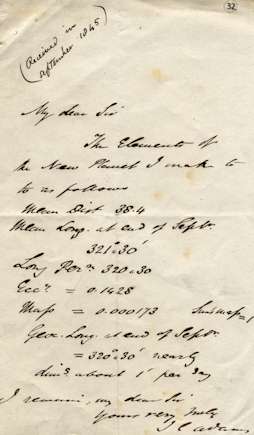 32
(Received in
September 1845)
My dear Sir
The Elements of
the New Planet I make to
be as follows
Mean Dist 38.4
Mean Long. at end of Septr.
321°30'
Long Perⁿ. 320.30
Eccʸ. = 0.1428
Mass = 0.000173 Sun's mass=1
Geoc. Long. at end of Septr.
= 320°30' nearly
dimᵍ. about 1' per day
I remain, my dear Sir
Yours very truly
J C Adams